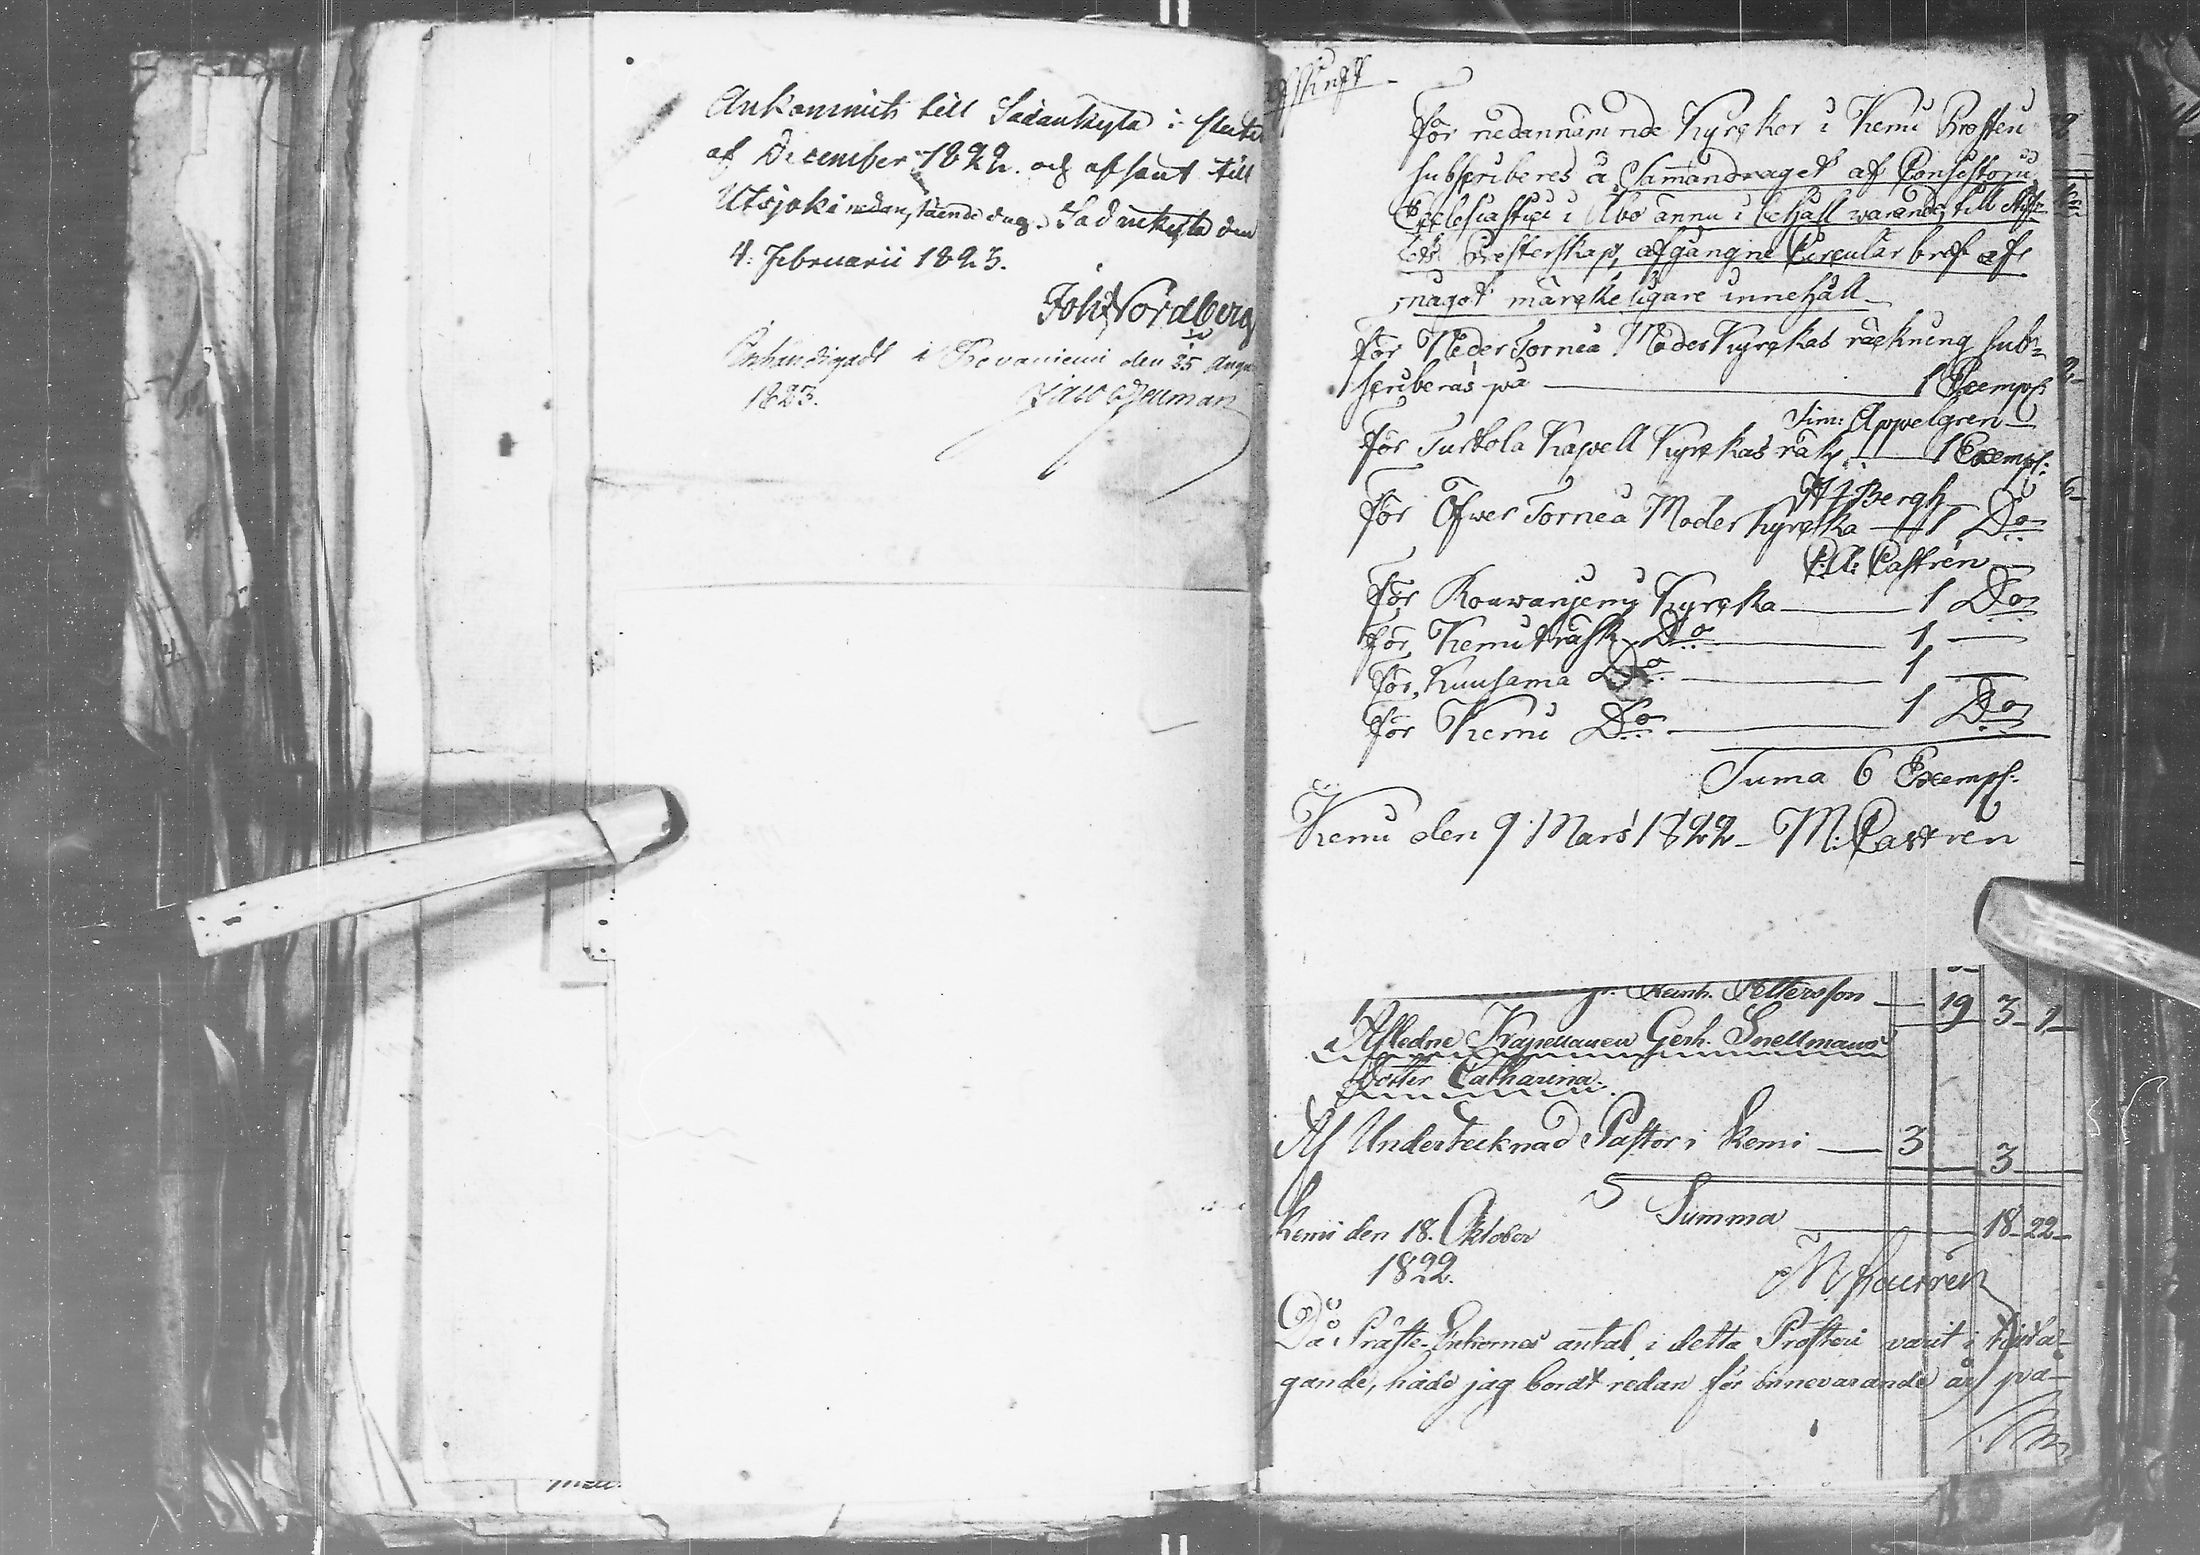 Ankommit till Sodankyla i slutet
af December 1822. och afsant till
Utsjoki nedanstående dag. Sodankyla den
4. Februarii 1823.
Joh: Nordberg
Inhändigadt i Rovaniemi den 25 Augu
1823. Jacob Fellman
Afskrift
För nedannämnde Kyrckor i Kemi Prosteri
subscriberes å Sammandraget af Consistorii
Ecclesiastici i Åbo ännu i behåll warande, till Stif-
tets Presterskap, afgångne Circulär bref af
något märckeligare innehåll
För Neder Torneå Moder Kyrckas räckning sub-
scriberas på 1 Exempl:
Sim: Appelgren
För Turtola Kapell Kyrckas räk. 1 Exempl:
H J Bergh
För Öfwer Torneå Moder Kyrcka 1 Do
Castrén
För Rouwanjemi Kyrcka 1 Do
För Kemiträsk Do 1
För Kuusamo Do 1
För Kemi Do 1 Do
Suma 6 Exempl:
Kemi den 9 Mars 1822 M: Castren
Henr. Pettersson 19 3 1
Afledne Kapellanen Gerh. Snellmans
dotter Catharina.
Af Undertecknad Pastor i Kemi 3 3
Summa 18 22
Kemi den 18. Oktober
1822.
M Castrén
Då Präste-Enkornas antal i detta Prosteri varit i tilta-
gande, hade jag bordt redan för innevarande år på-